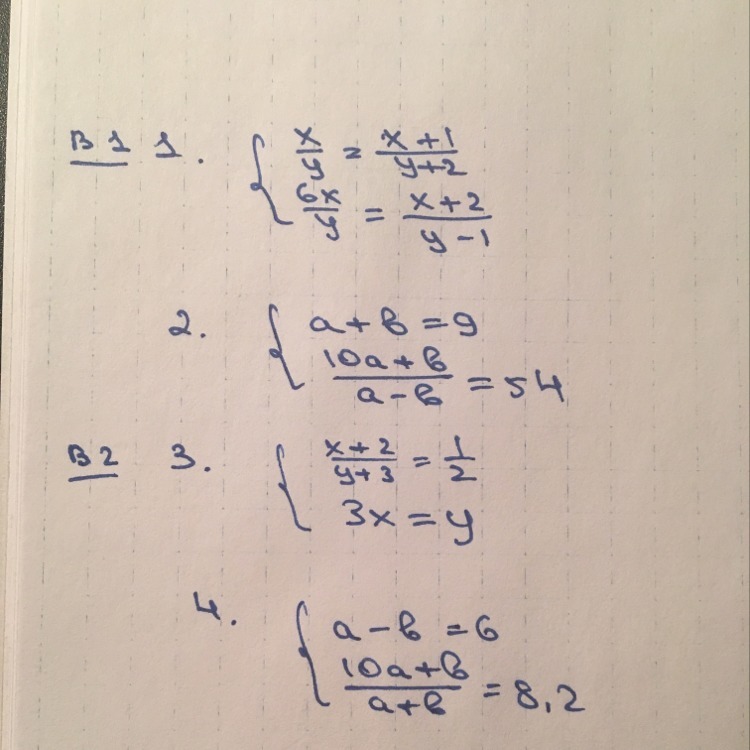 В1 1. { x/y = (x+1)/(y+2)
6x/y = (x+2)/(y-1)
2. { a+b=9
(10a+b)/(a-b) = 54
В2 3. { (x+2)/(y+3) = 1/2
3x=y
4. { a-b=6
(10a+b)/(a+b) = 8,2